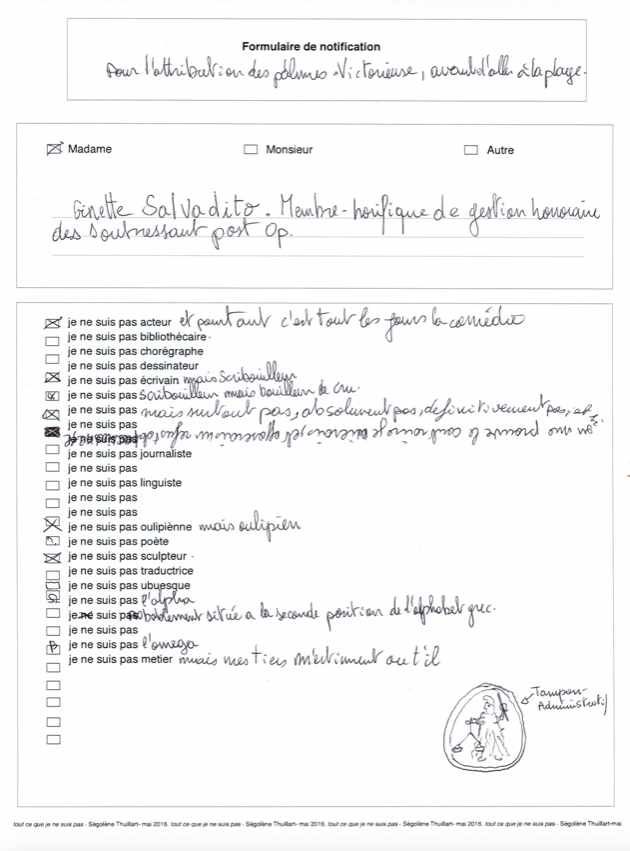 Formulaire de notification
Pour l'attribution des palmes Victorieuse, avant d'aller à la plage.
Madame
Monsieur
Autre
Ginette Salvadito. Membre-horifique de gestion honoraire
des post Op.
je ne suis pas acteur et pourtant c'est tout les jours la comédie
je ne suis pas bibliothécaire
je ne suis pas chorégraphe
je ne suis pas dessinateur
je ne suis pas écrivain mais Scribouilleur
je ne suis pas Scribouilleur mais bouilleur de cru.
je ne suis pas mais surtout pas, absolument pas, définitivement pas, et
je ne suis pas
je ne suis pas journaliste
je ne suis pas
je ne suis pas linguiste
je ne suis pas
je ne suis pas
je ne suis pas oulipiènne mais oulipien
je ne suis pas poète
je ne suis pas sculpteur
je ne suis pas traductrice
je ne suis pas ubuesque
je ne suis pas l'alpha
je ne suis pas située a la seconde position de l'alphabet grec.
je ne suis pas
je ne suis pas l'omega
je ne suis pas metier mais mes tiers m'estiment
Tampon-
Administratif
tout ce que je ne suis pas - Ségolène Thuillart- mai 2016. tout ce que je ne suis pas - Ségolène Thuillart- mai 2016. tout ce que je ne suis pas - Ségolène Thuillart- mai 2016. tout ce que je ne suis pas - Ségolène Thuillart-mai